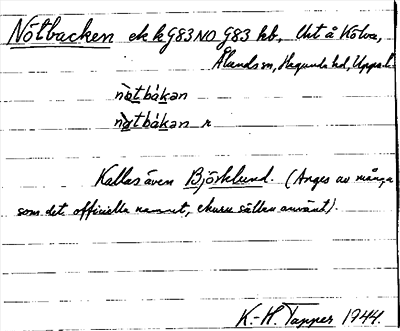 Nötbacken ek k G83NO G83 hb, Urt å Kölva,
Ålands sn, Hagunda hd, Uppsal.
nø̀tbákan
nø̀tbákan r
Kallas även Björklund. (Anges av många
som det officiella namnet, ehuru sällan använt).
K.-H. Tapper 1944.